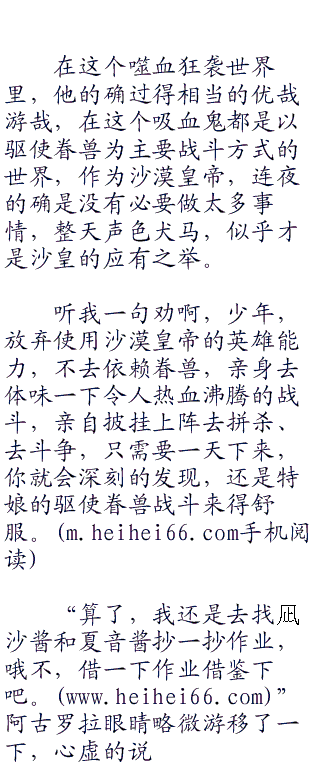 在这个噬血狂袭世界
里，他的确过得相当的优哉
游哉，在这个吸血鬼都是以
驱使眷兽为主要战斗方式的
世界，作为沙漠皇帝，连夜
的确是没有必要做太多事
情，整天声色犬马，似乎才
是沙皇的应有之举。
听我一句劝啊，少年，
放弃使用沙漠皇帝的英雄能
力，不去依赖眷兽，亲身去
体味一下令人热血沸腾的战
斗，亲自披挂上阵去拼杀、
去斗争，只需要一天下来，
你就会深刻的发现，还是特
娘的驱使眷兽战斗来得舒
服。(m.heihei66.com手机阅
读)
“算了，我还是去找凪
沙酱和夏音酱抄一抄作业，
哦不，借一下作业借鉴下
吧。(www.heihei66.com)”
阿古罗拉眼睛略微游移了一
下，心虚的说